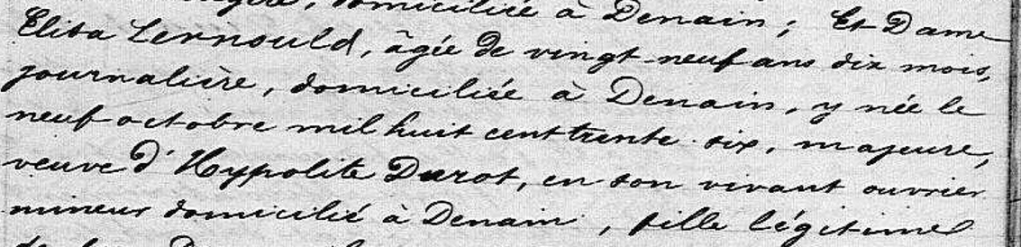 domiciliée à Denain ; Et Dame
Elisa Lernould, âgée de vingt-neuf ans dix mois,
journalière, domiciliée à Denain, y née le
neuf octobre mil huit cent trente six, majeure,
veuve d'Hypolite Durot, en son vivant ouvrier
mineur domicilié à Denain, fille légitime